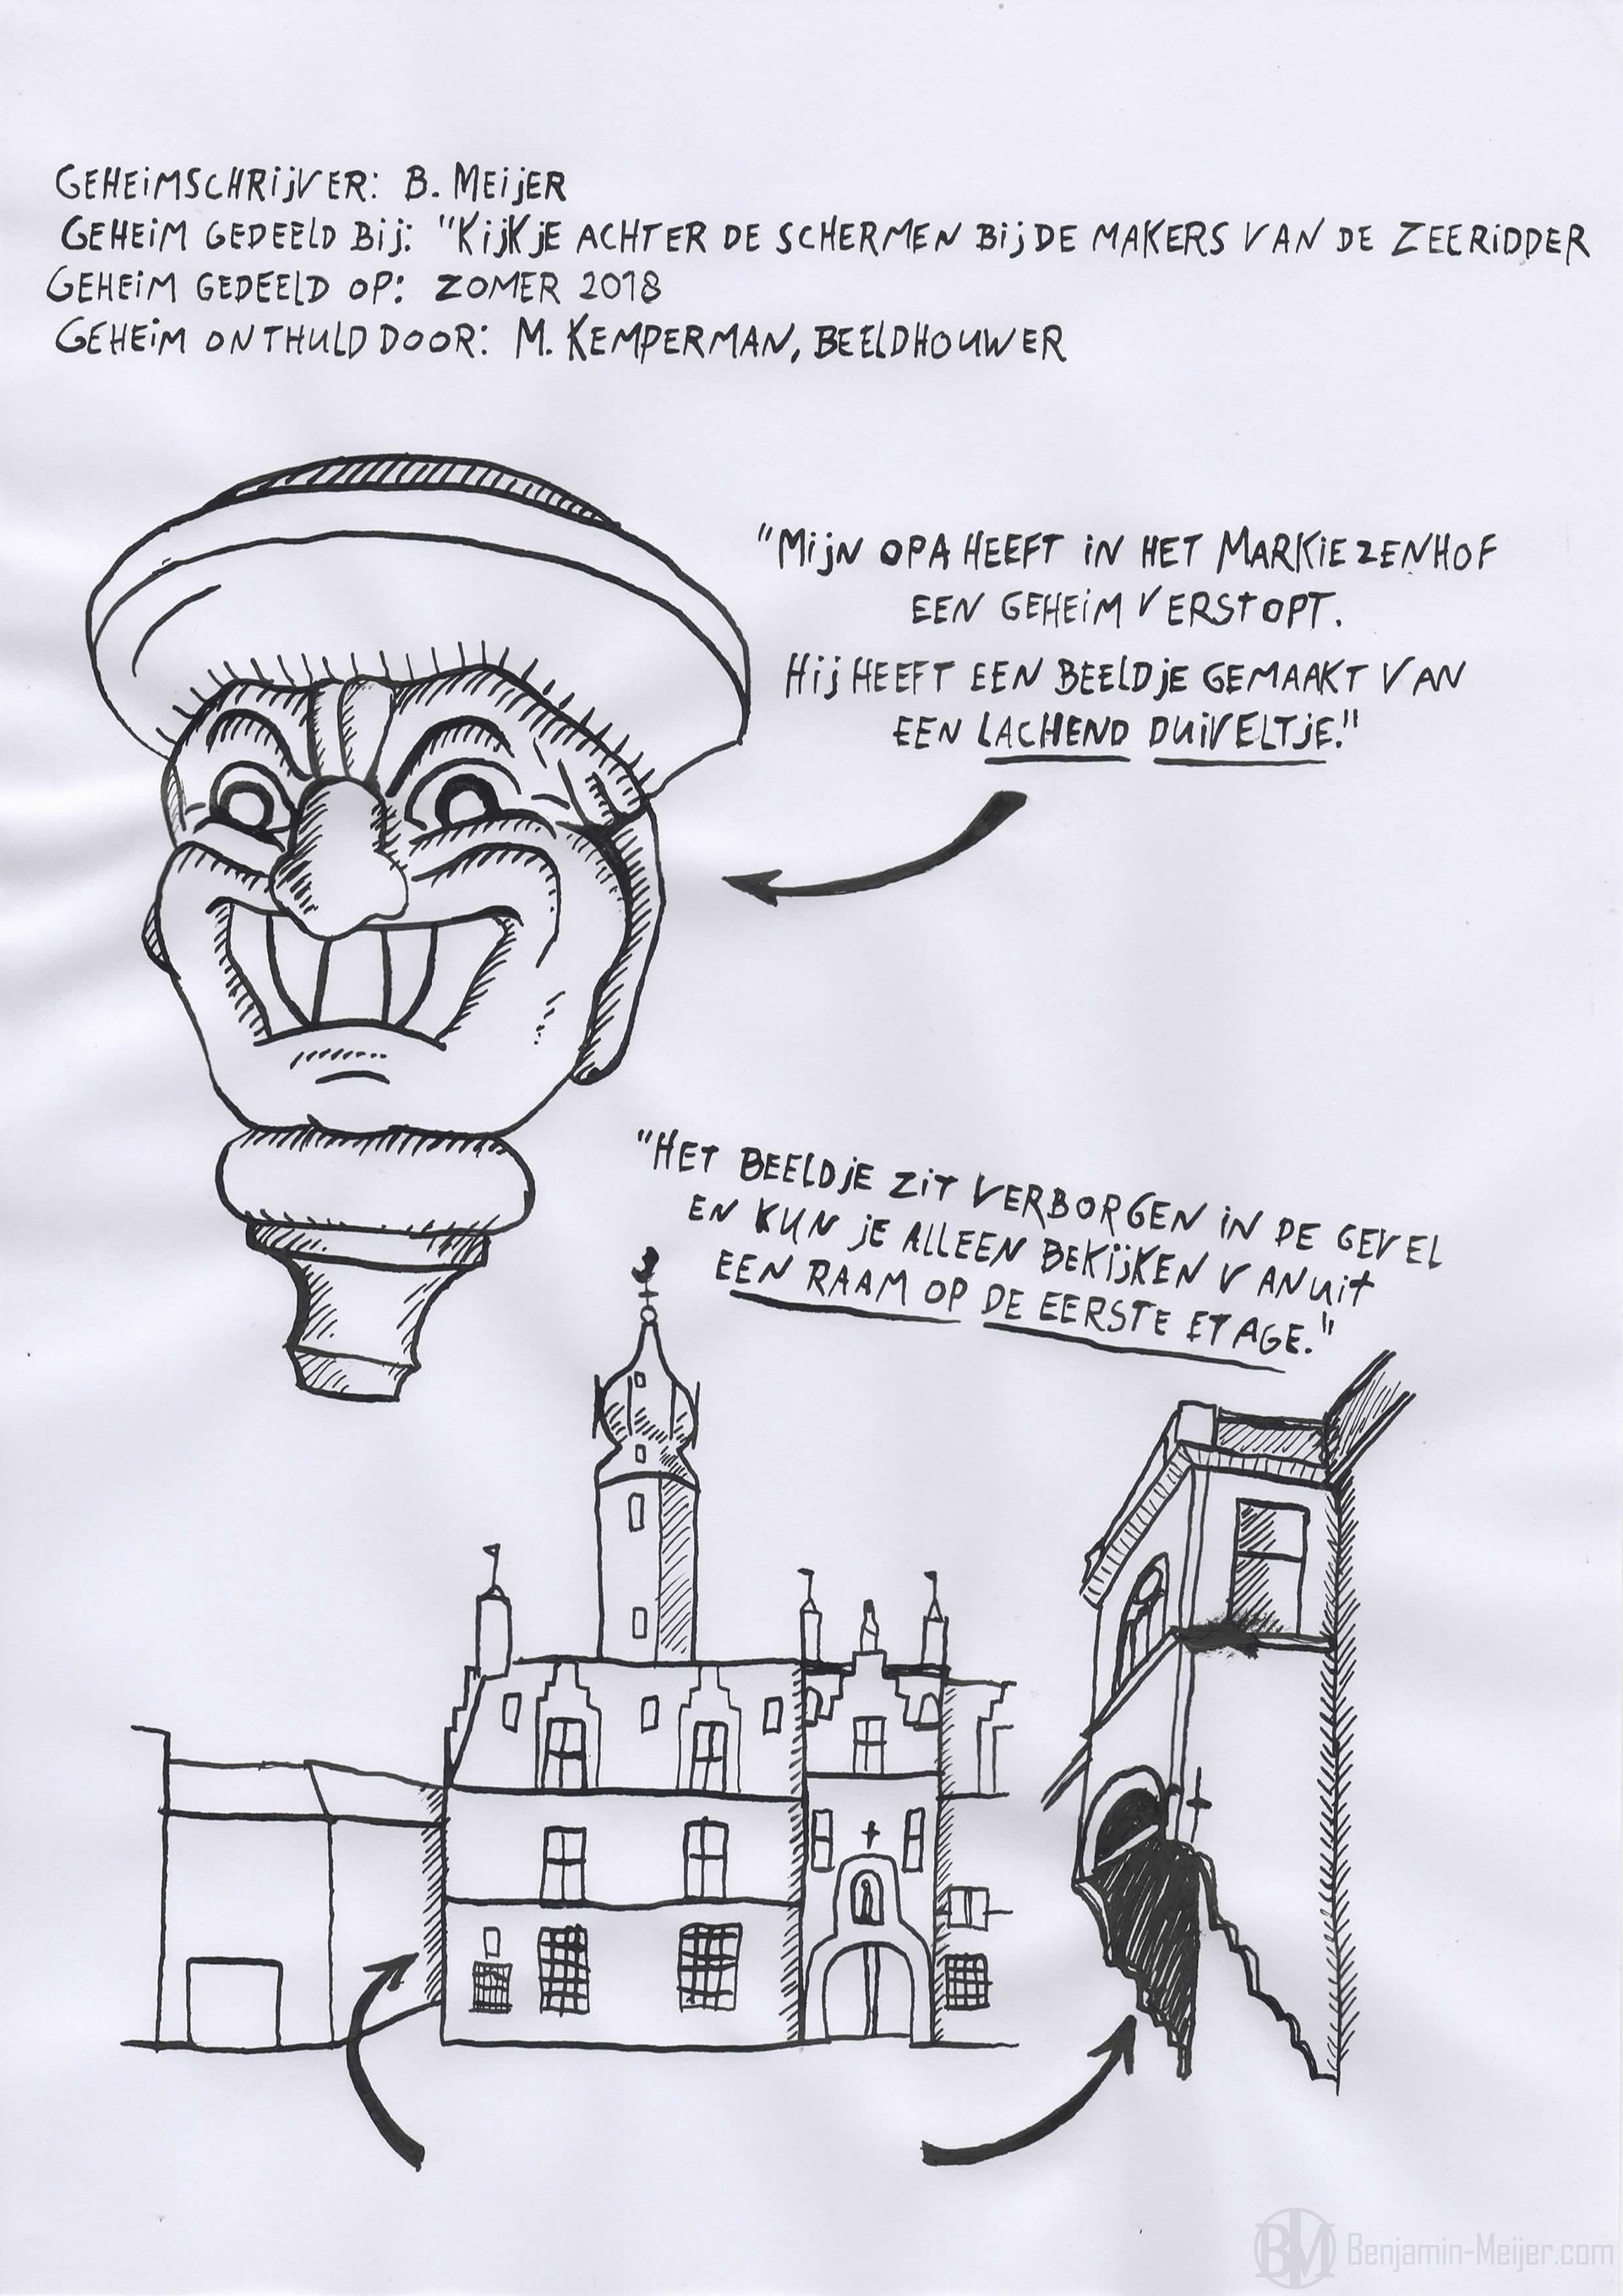 GEHEIMSCHRIJVER: B. MEIJER
GEHEIM GEDEELD BIJ: "KIJKJE ACHTER DE SCHERMEN BIJ DE MAKERS VAN DE ZEERIDDER
GEHEIM GEDEELD OP: ZOMER 2018
GEHEIM ONTHULD DOOR: M. KEMPERMAN, BEELDHOUWER
"MIJN OPA HEEFT IN HET MARKIEZENHOF
EEN GEHEIM VERSTOPT.
HIJ HEEFT EEN BEELDJE GEMAAKT VAN
EEN LACHEND DUIVELTJE."
"HET BEELDJE ZIT VERBORGEN IN DE GEVEL
EN KUN JE ALLEEN BEKIJKEN VANUIT
EEN RAAM OP DE EERSTE ETAGE."
BM Benjamin-Meijer.com